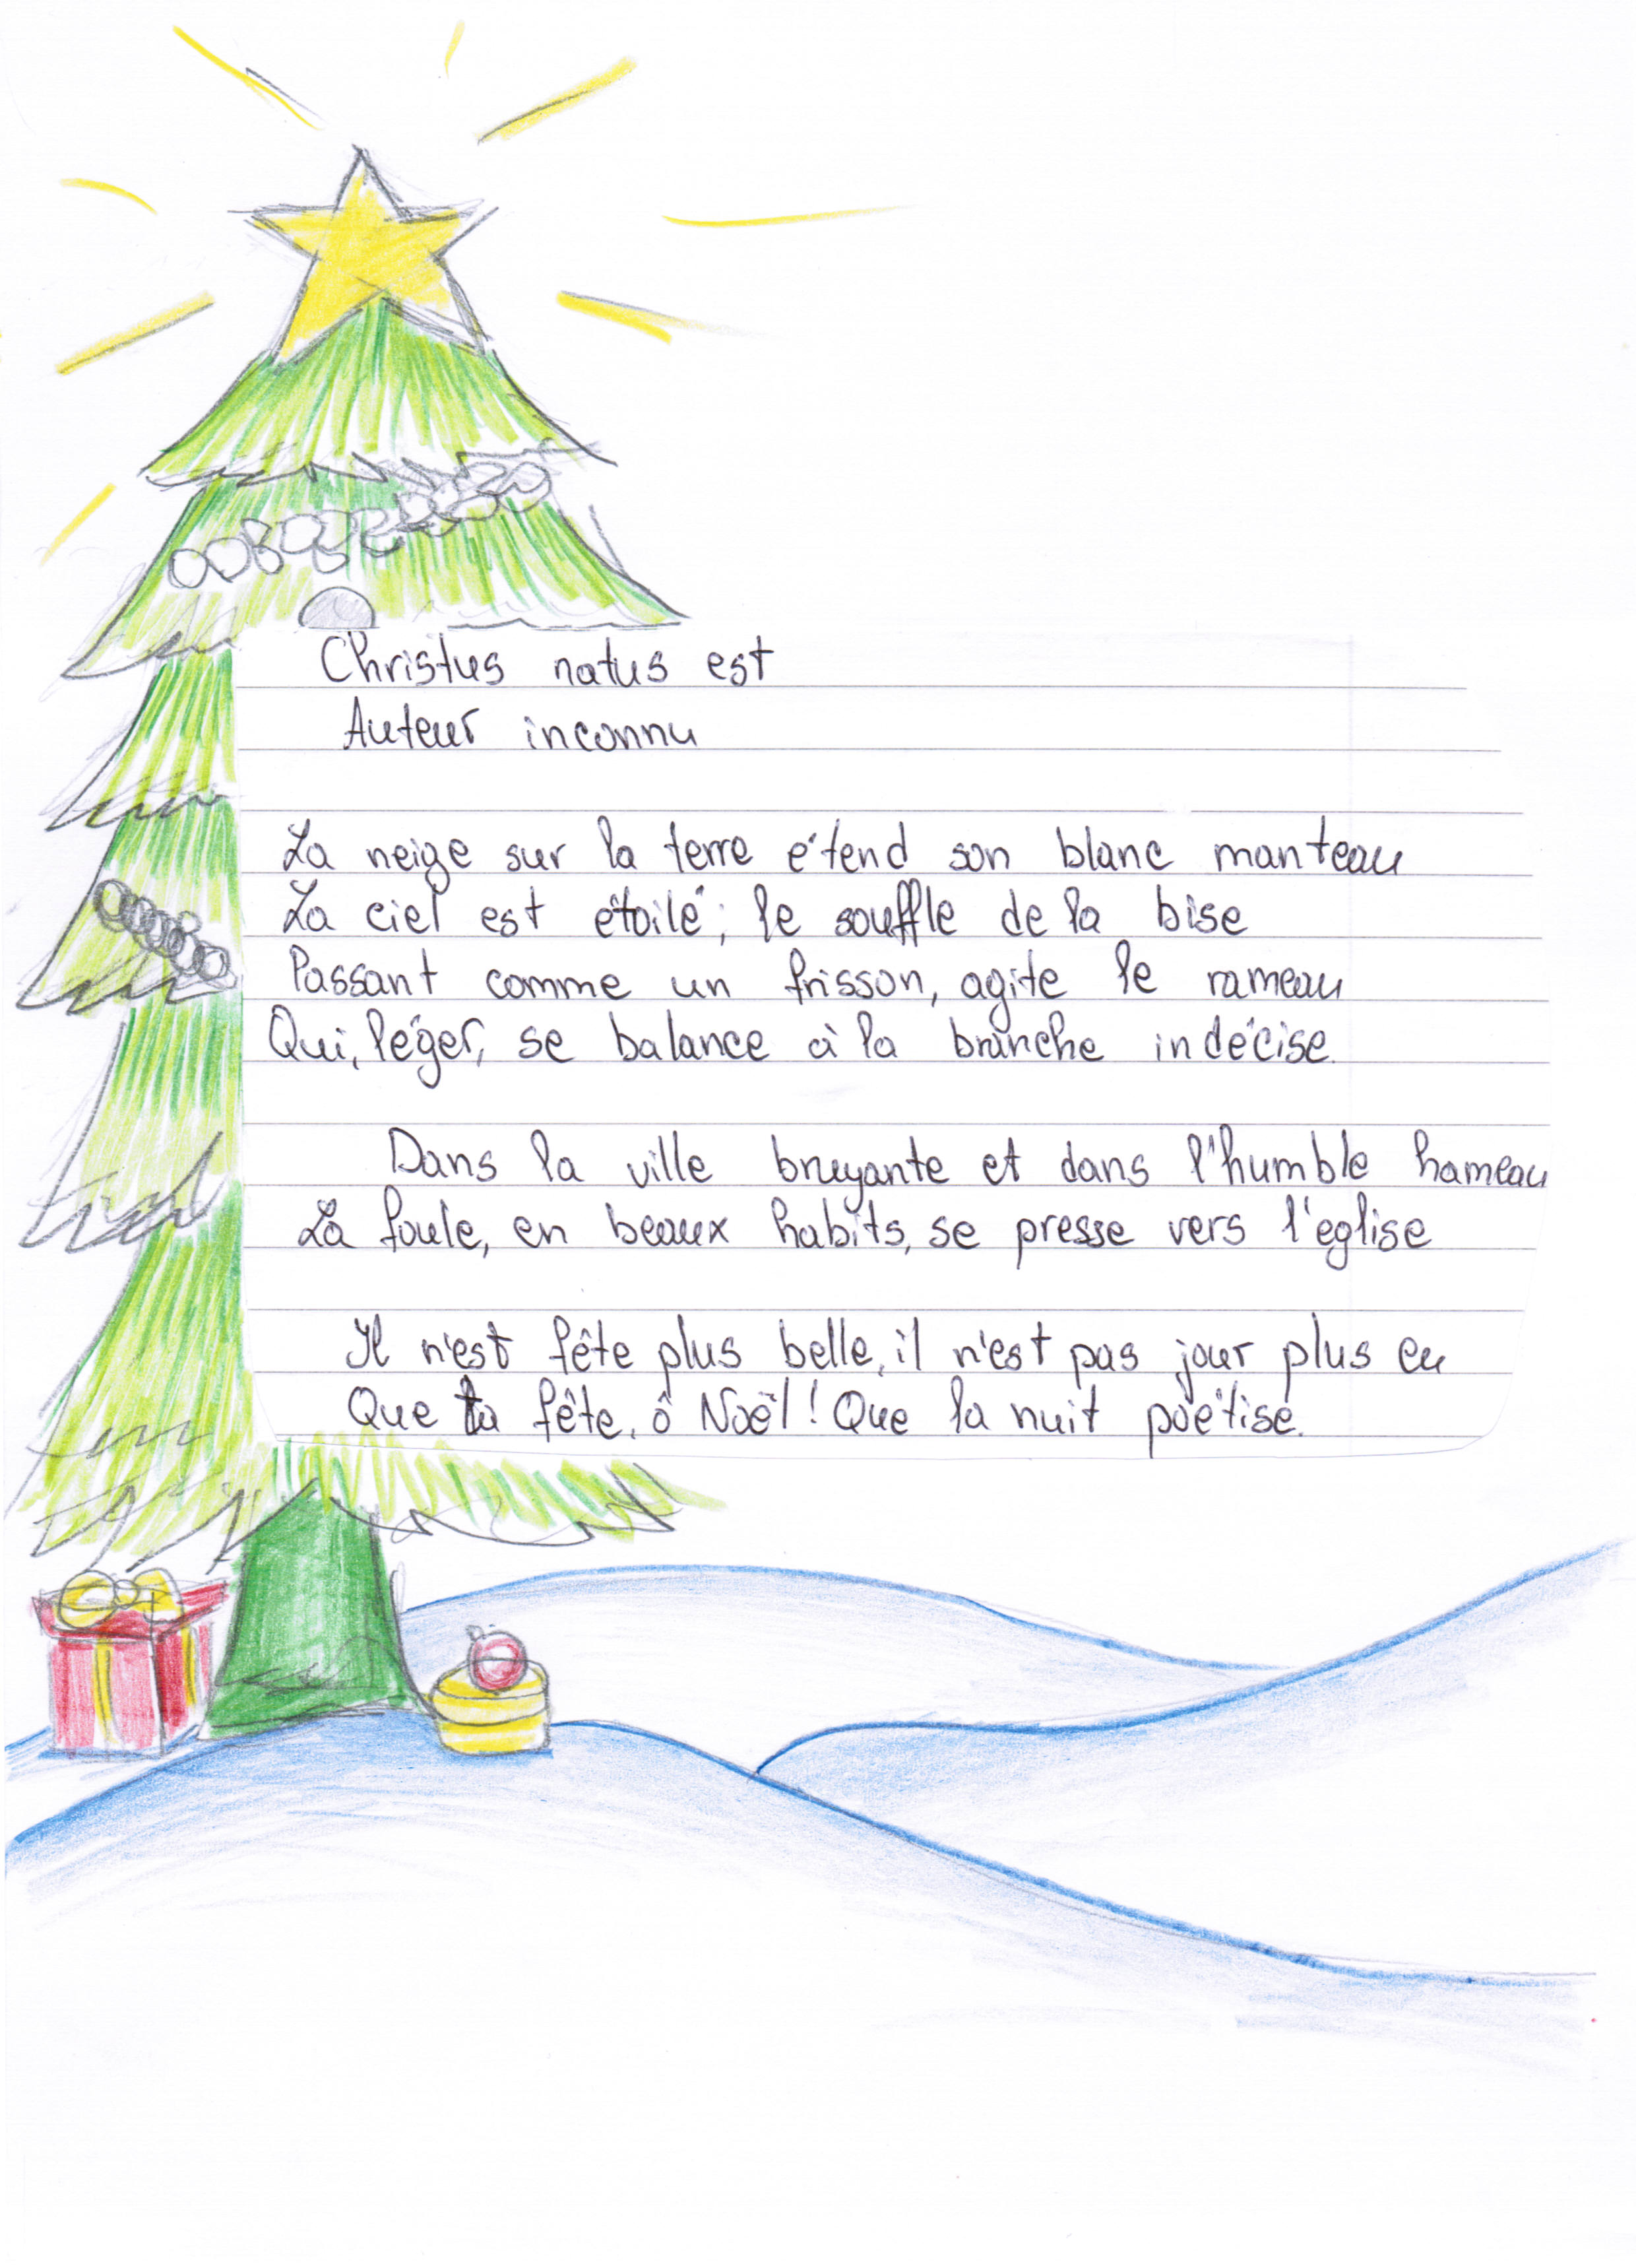 Christus natus est
Auteur inconnu
La neige sur la terre étend son blanc manteau
La ciel est étoilé; le souffle de la bise
Passant comme un frisson, agite le rameau
Qui, léger, se balance à la branche indécise.
Dans la ville bruyante et dans l'humble hameau
La foule, en beaux habits, se presse vers l'eglise
Il n'est fête plus belle, il n'est pas jour plus eu
Que ta fête, ô Noël! Que la nuit poétise.